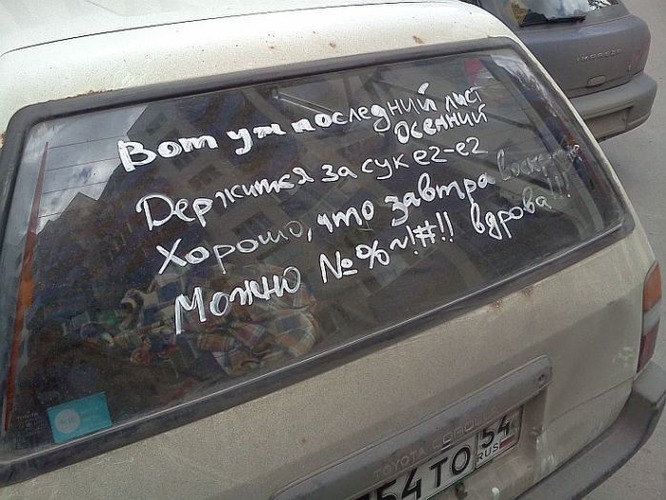 Вот уж последний лист
осенний
Держится за сук ег-ег
Хорошо, что завтра
Можно №%~!#!! вдрова!!!
IMPREZA
TOYOTA CORO
54ТО 54
RUS